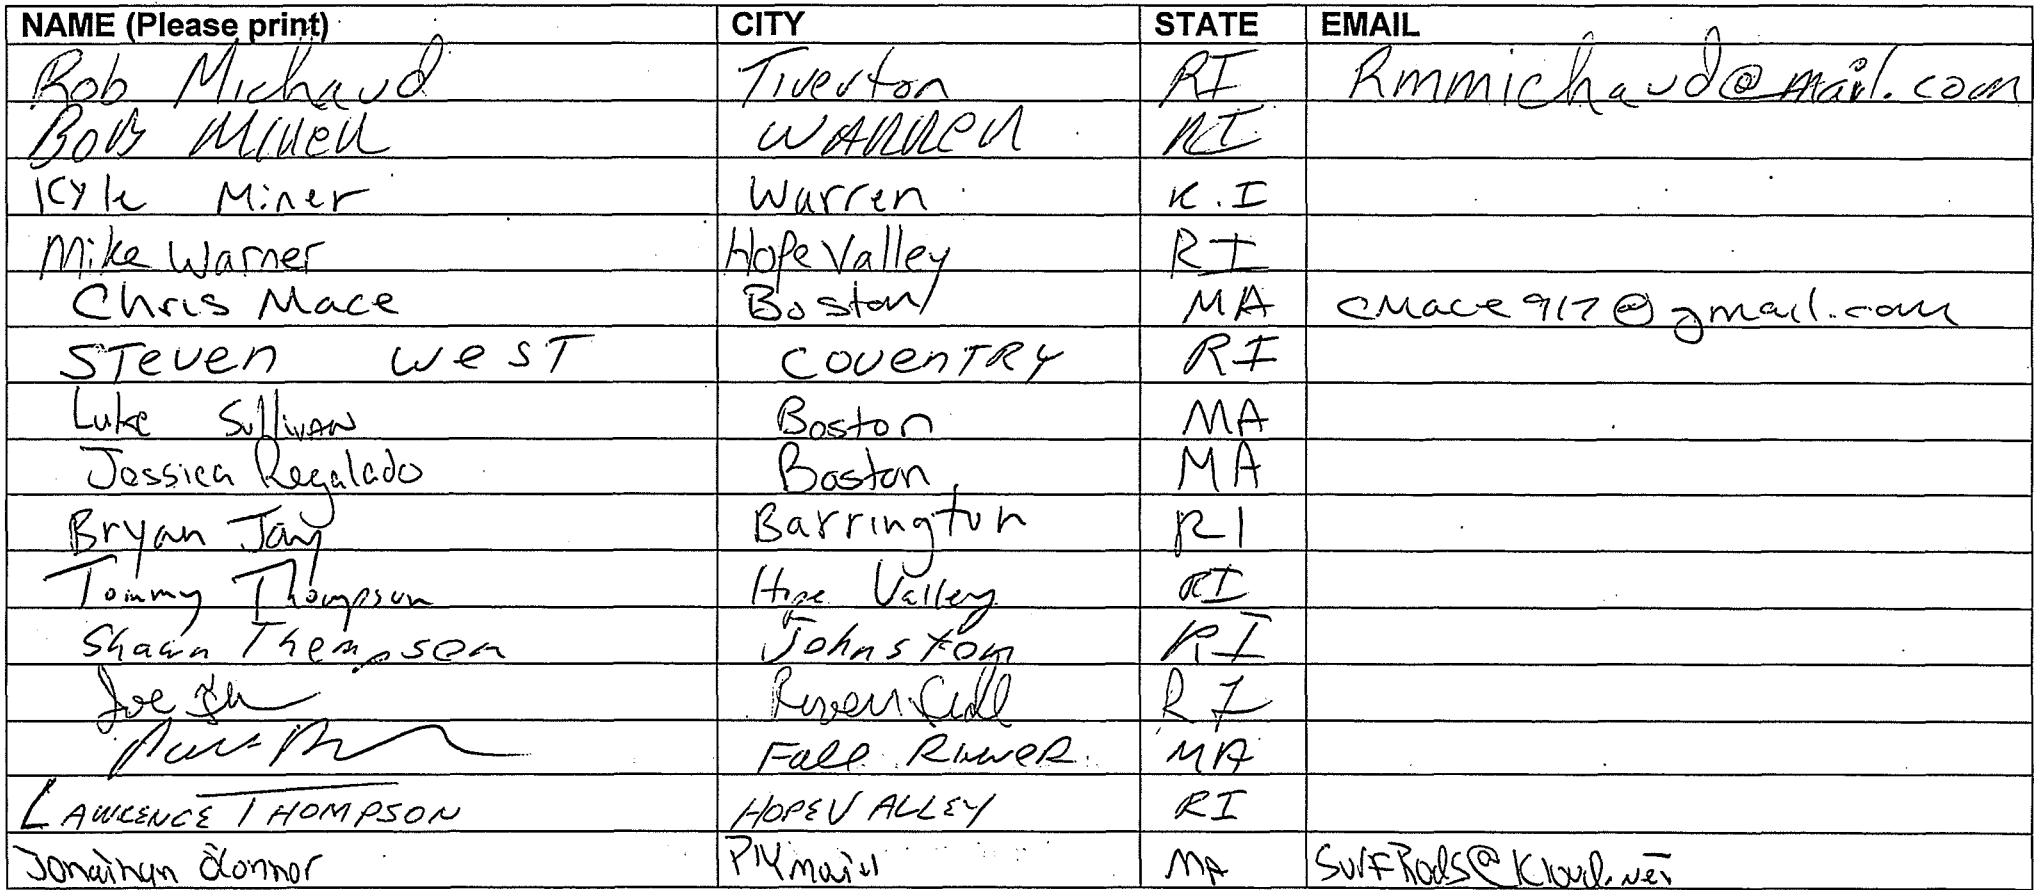 NAME (Please print) CITY STATE EMAIL
Rob Michaud Tiverton RI Rmmichaud@mail.com
BOB Miller WARREN RI
Kyle Miner Warren R.I
Mike Warner Hope Valley RI
Chris Mace Boston MA cmace917@gmail.com
STeven WesT COVenTRY RI
Luke Sullivan Boston MA
Jessica Regalado Boston MA
Bryan Jay Barrington RI
Tommy Thompson Hope Valley RI
Shawn Thompson Johnston RI
Joe RI
Fall RIVER MA
LAWRENCE THOMPSON HOPE VALLEY RI
Jonathan O'Connor MA SurfRods@Kloud.net